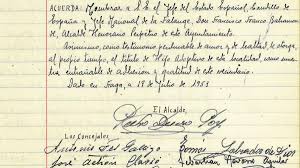 ACUERDA: Nombrar a S.E. el Jefe del Estado Español, Caudillo de
España y Jefe Nacional de la Falange, Don Francisco Franco Bahamonde,
de, Alcalde Honorario Perpetuo de este Ayuntamiento.
Asimismo, como testimonio perdurable de amor y de lealtad, le otorga,
al propio tiempo, el título de Hijo Adoptivo de esta localidad, como una
entrañable de adhesión y gratitud de este vecindario.
Dado en Fraga, a 18 de Julio de 1953
El Alcalde,
Los Concejales
Antonio Tomás Salvador
José Sebastián